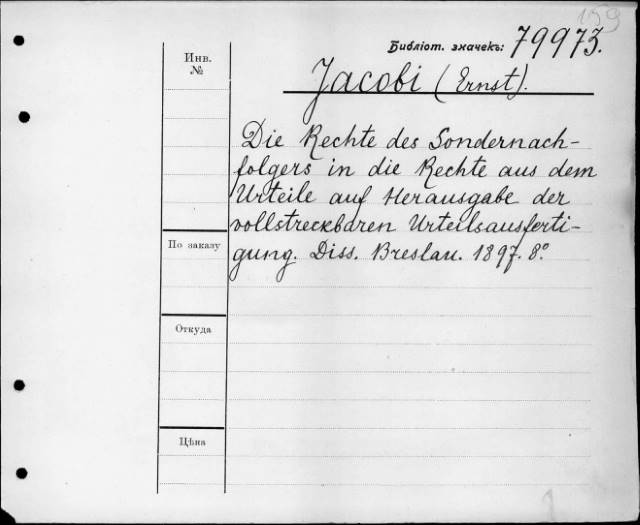 159
Библіот. значекъ: 79973.
Инв.
№
Jacobi (Ernst).
Die Rechte des Sondernach-
folgers in die Rechte aus dem
Urteile auf Herausgabe der
vollstreckbaren Urteilsausferti-
gung. Diss. Breslau. 1897. 8º
По заказу
Откуда
Цѣна